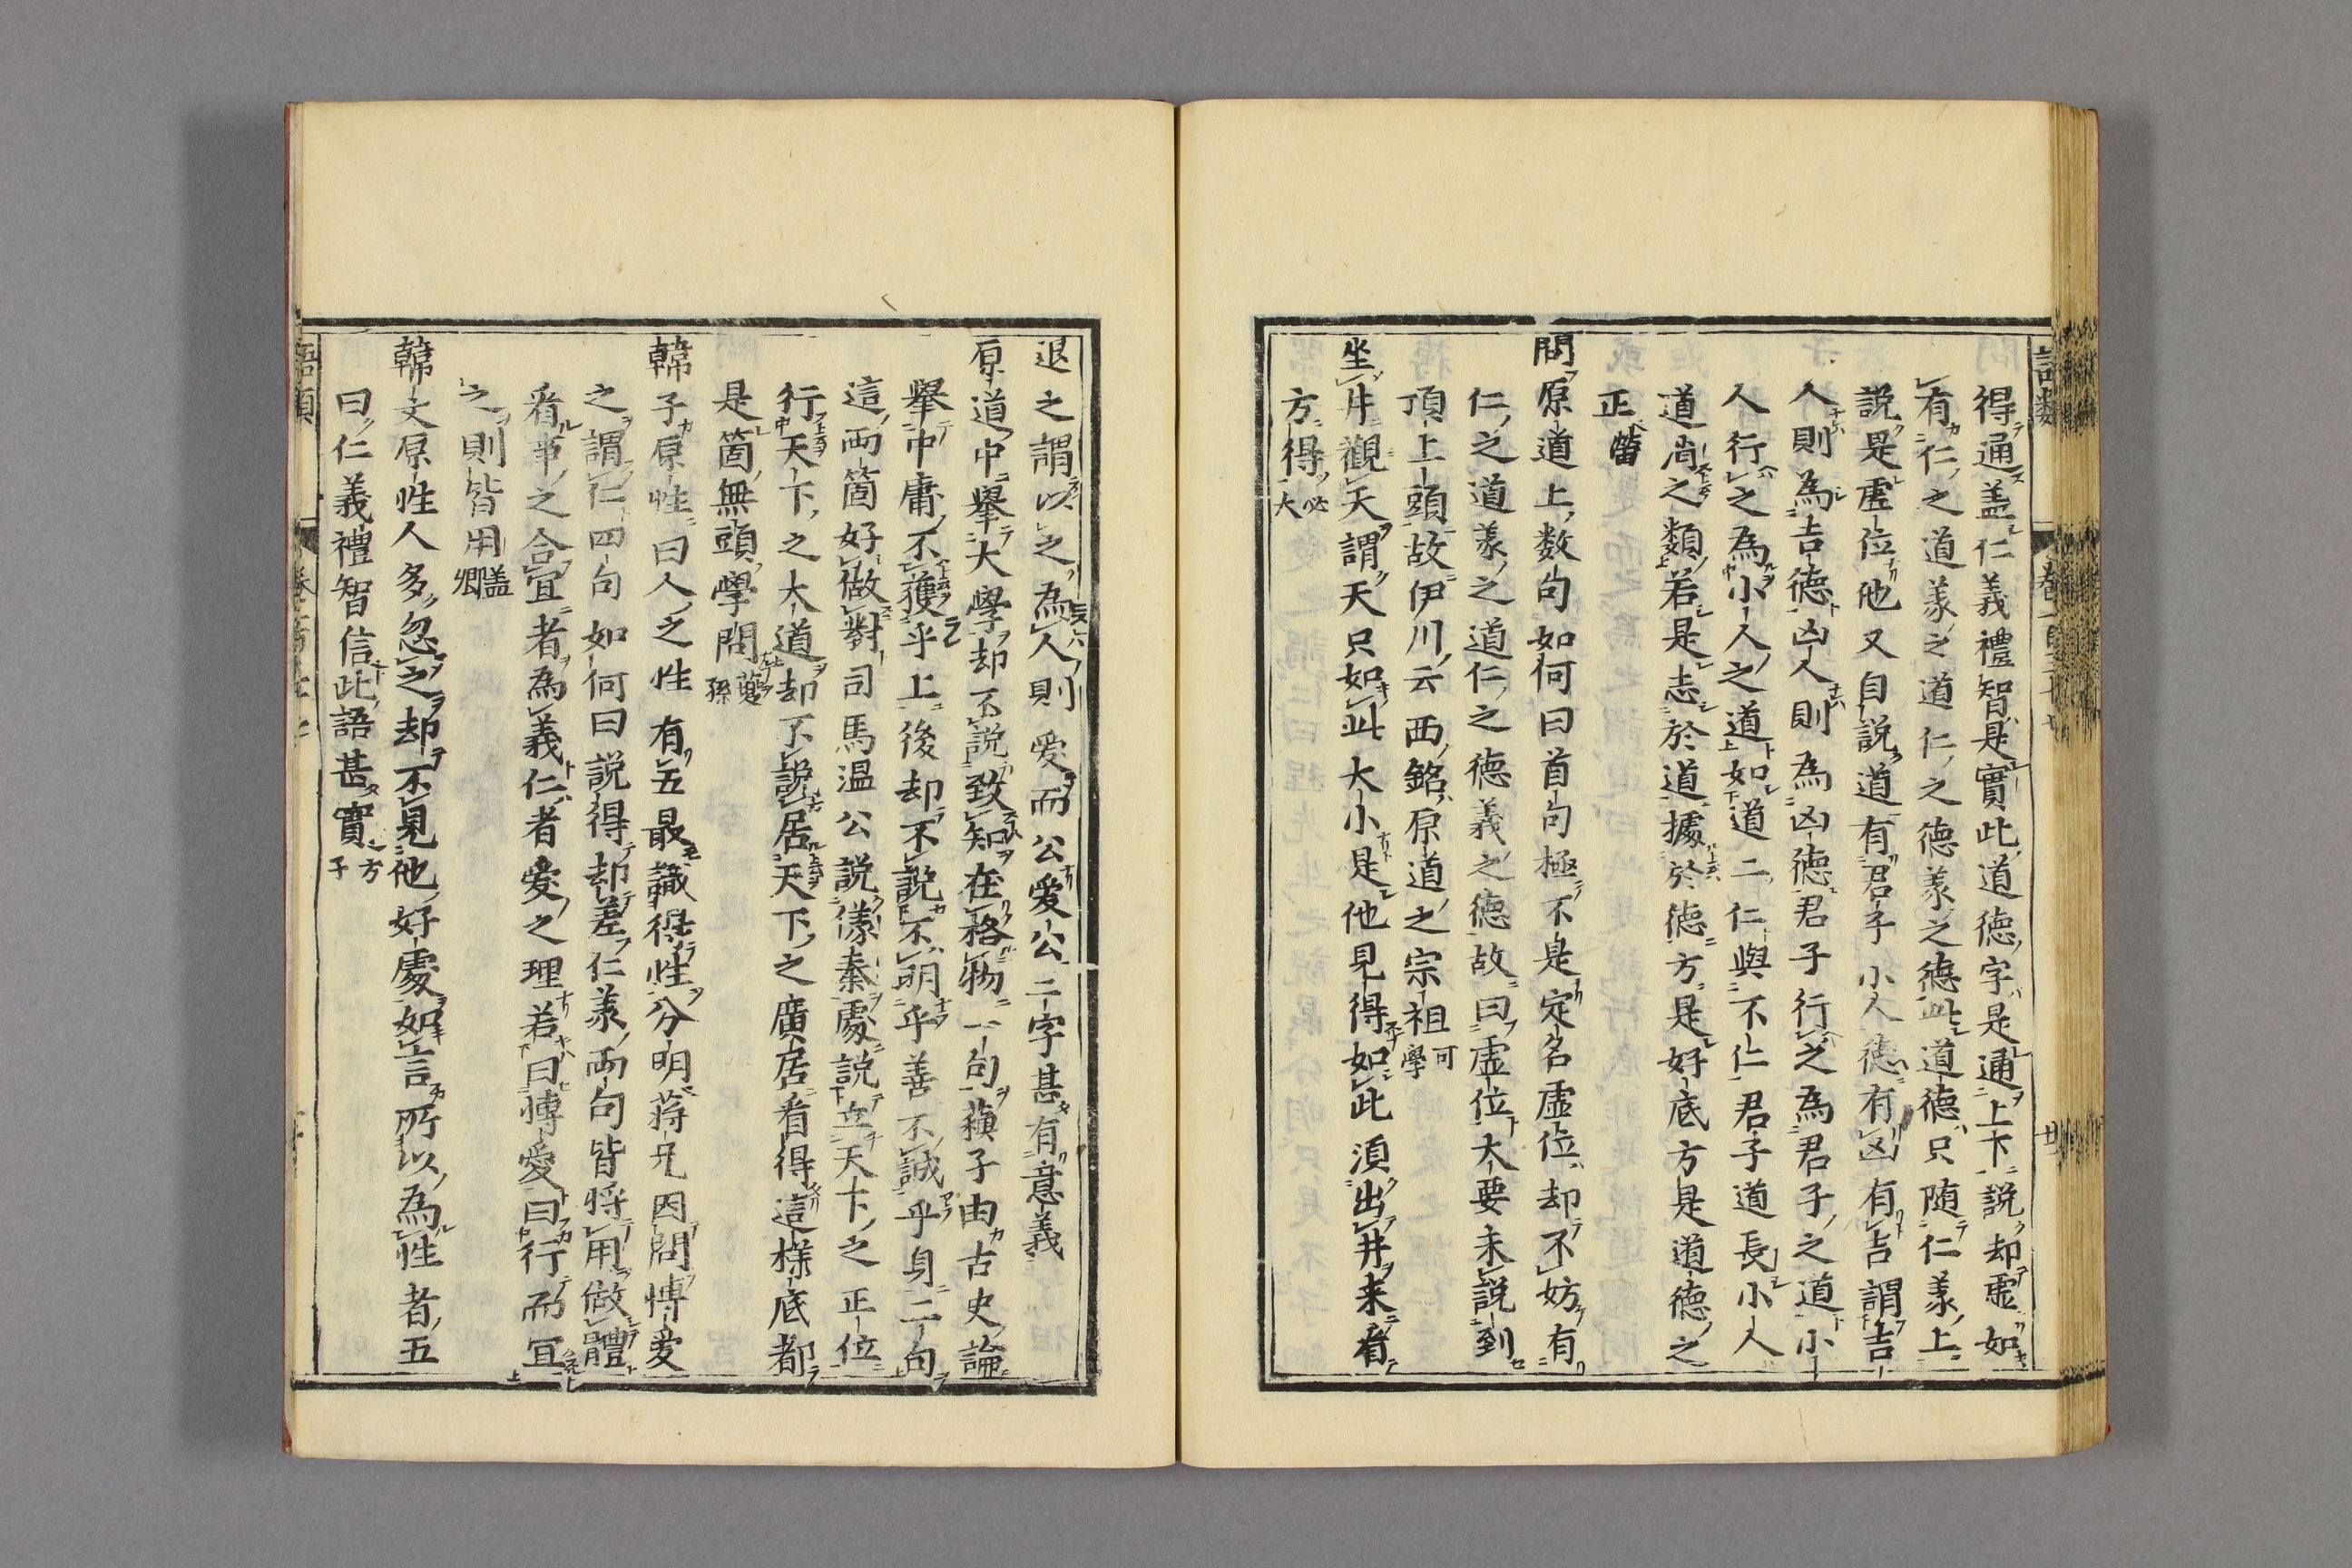 得通盖仁義禮智是實此道德字是通上下說却虛如
有仁之道義之道仁之德義之德此道德只随仁義上
說是虛位他又自說道有君子小人德有凶有吉謂吉
人則為吉德凶人則為凶德君子行之為君子之道小
人行之為小人之道如道二仁與不仁君子道長小人
道消之類若是志於道據於德方是好底方是道德之
正
㽦
問原道上数句如何曰首句極不是定名虛位却不妨有
仁之道義之道仁之德義之德故曰虛位大要未說到
頂上頭故伊川云西銘原道之宗祖
可
學
坐井觀天謂天只如此大小是他見得如此須出井来看
方得
必
大
退之謂以之為人則愛而公愛公二字甚有意義
原道中舉大學却不說致知在格物一句蘓子由古史論
舉中庸不獲乎上後却不說不明乎善不誠乎身二句
這两箇好做對司馬温公說儀秦處說立天下之正位
行天下之大道却不說居天下之廣居看得這様底都
是箇無頭學問
夔
孫
韓子原性曰人之性有五最識得性分明蔣兄因問博愛
之謂仁四句如何曰說得却差仁義两句皆將用做體
看事之合宜者為義仁者愛之理若曰博愛曰行而宜
之則皆用
盖
卿
韓文原性人多忽之却不見他好處如言所以為性者五
曰仁義禮智信此語甚實
方
子
語類